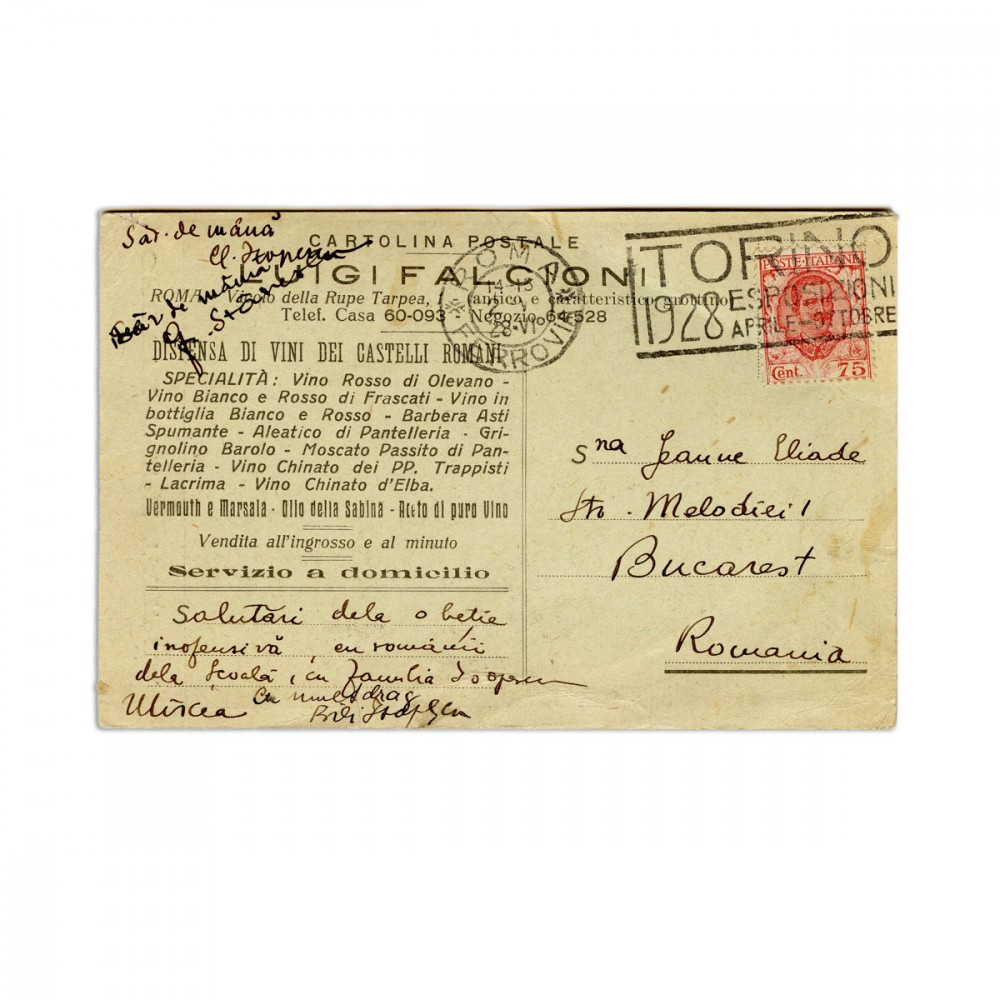 Săr. de mână
Cl. Isopescu
Săr de mâna
CARTOLINA POSTALE
LUIGI FALCIONI
ROMA Vicolo della Rupe Tarpea, (antico e caratteristico grottino)
Telef. Casa 60-093 Negozio 64-528
DISPENSA DI VINI DEI CASTELLI ROMANI
SPECIALITÀ: Vino Rosso di Olevano -
Vino Bianco e Rosso di Frascati - Vino in
bottiglia Bianco e Rosso - Barbera Asti
Spumante - Aleatico di Pantelleria - Gri-
gnolino Barolo - Moscato Passito di Pan-
telleria - Vino Chinato dei PP. Trappisti
- Lacrima - Vino Chinato d'Elba.
Vermouth e Marsala - Olio della Sabina - Aceto di puro Vino
Vendita all'ingrosso e al minuto
Servizio a domicilio
Salutări dela o beție
inofensivă, cu românii
dela Școală, cu familia Isopescu
Mircea
Cu mult drag
Isopescu
ROMA
14-15
28-VI
FERROVIA
TORINO
1928 ESPOSIZIONI
APRILE-OTTOBRE
POSTE·ITALIANE
Cent. 75
Sna Jeanne Eliade
Str. Melodiei 1
Bucarest
Romania